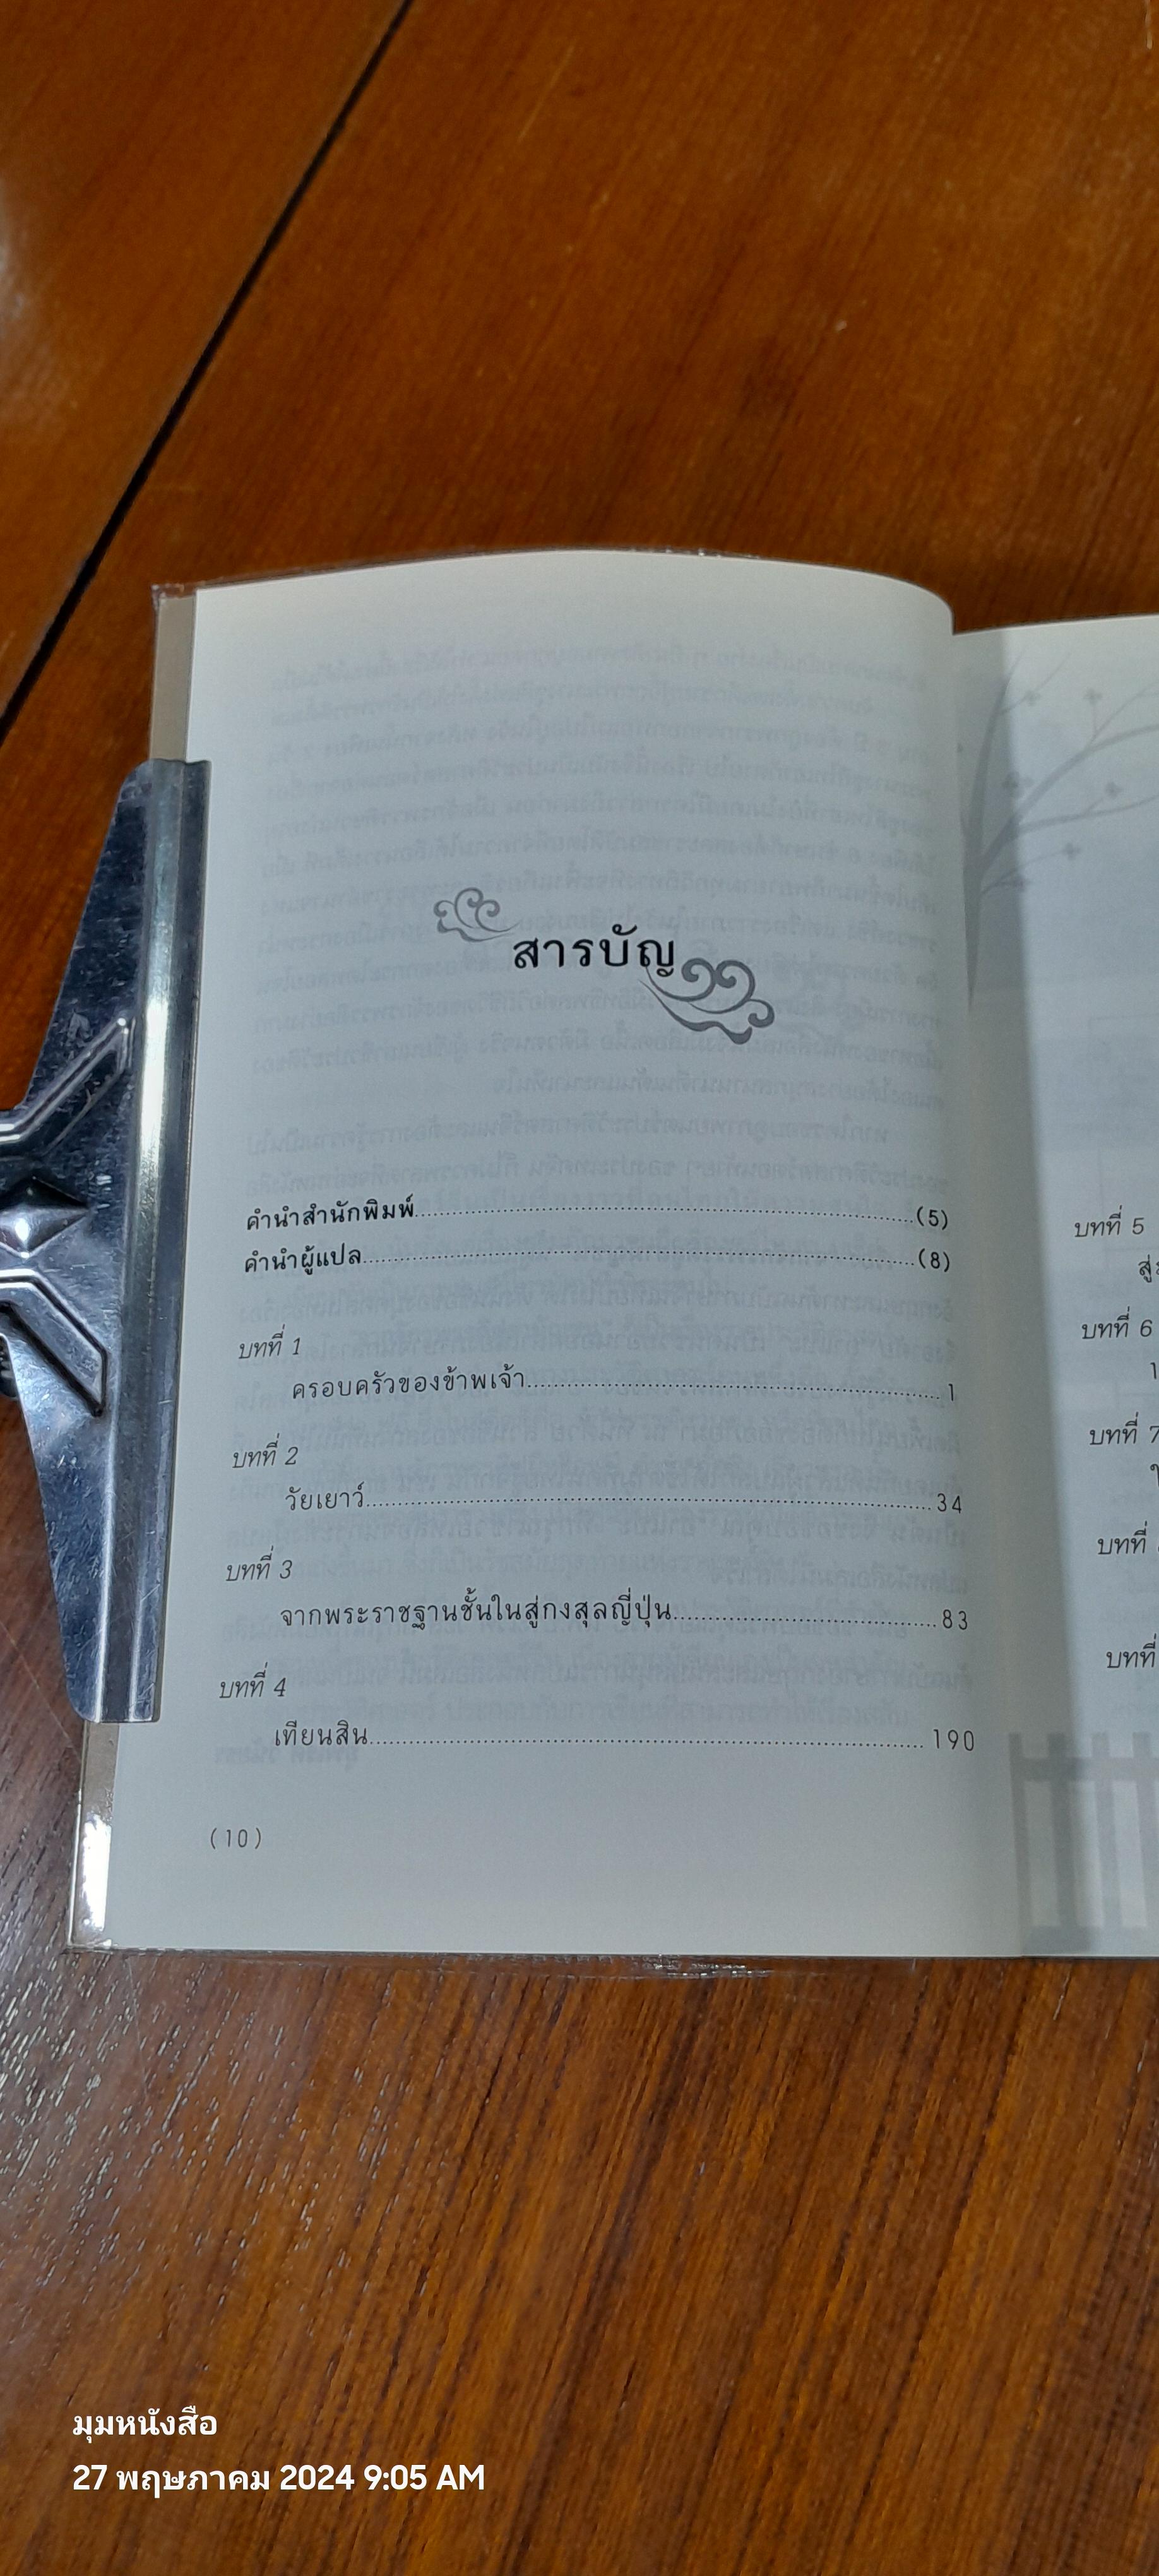 สารบัญ
คำนำสำนักพิมพ์ (5)
คำนำผู้แปล (8)
บทที่ 1
ครอบครัวของข้าพเจ้า 1
บทที่ 2
วัยเยาว์ 34
บทที่ 3
จากพระราชฐานชั้นในสู่กงสุลญี่ปุ่น 83
บทที่ 4
เทียนสิน 190
(10)
บทที่ 5
บทที่ 6
บทที่ 7
บทที่
บทที่
มุมหนังสือ
27 พฤษภาคม 2024 9:05 AM